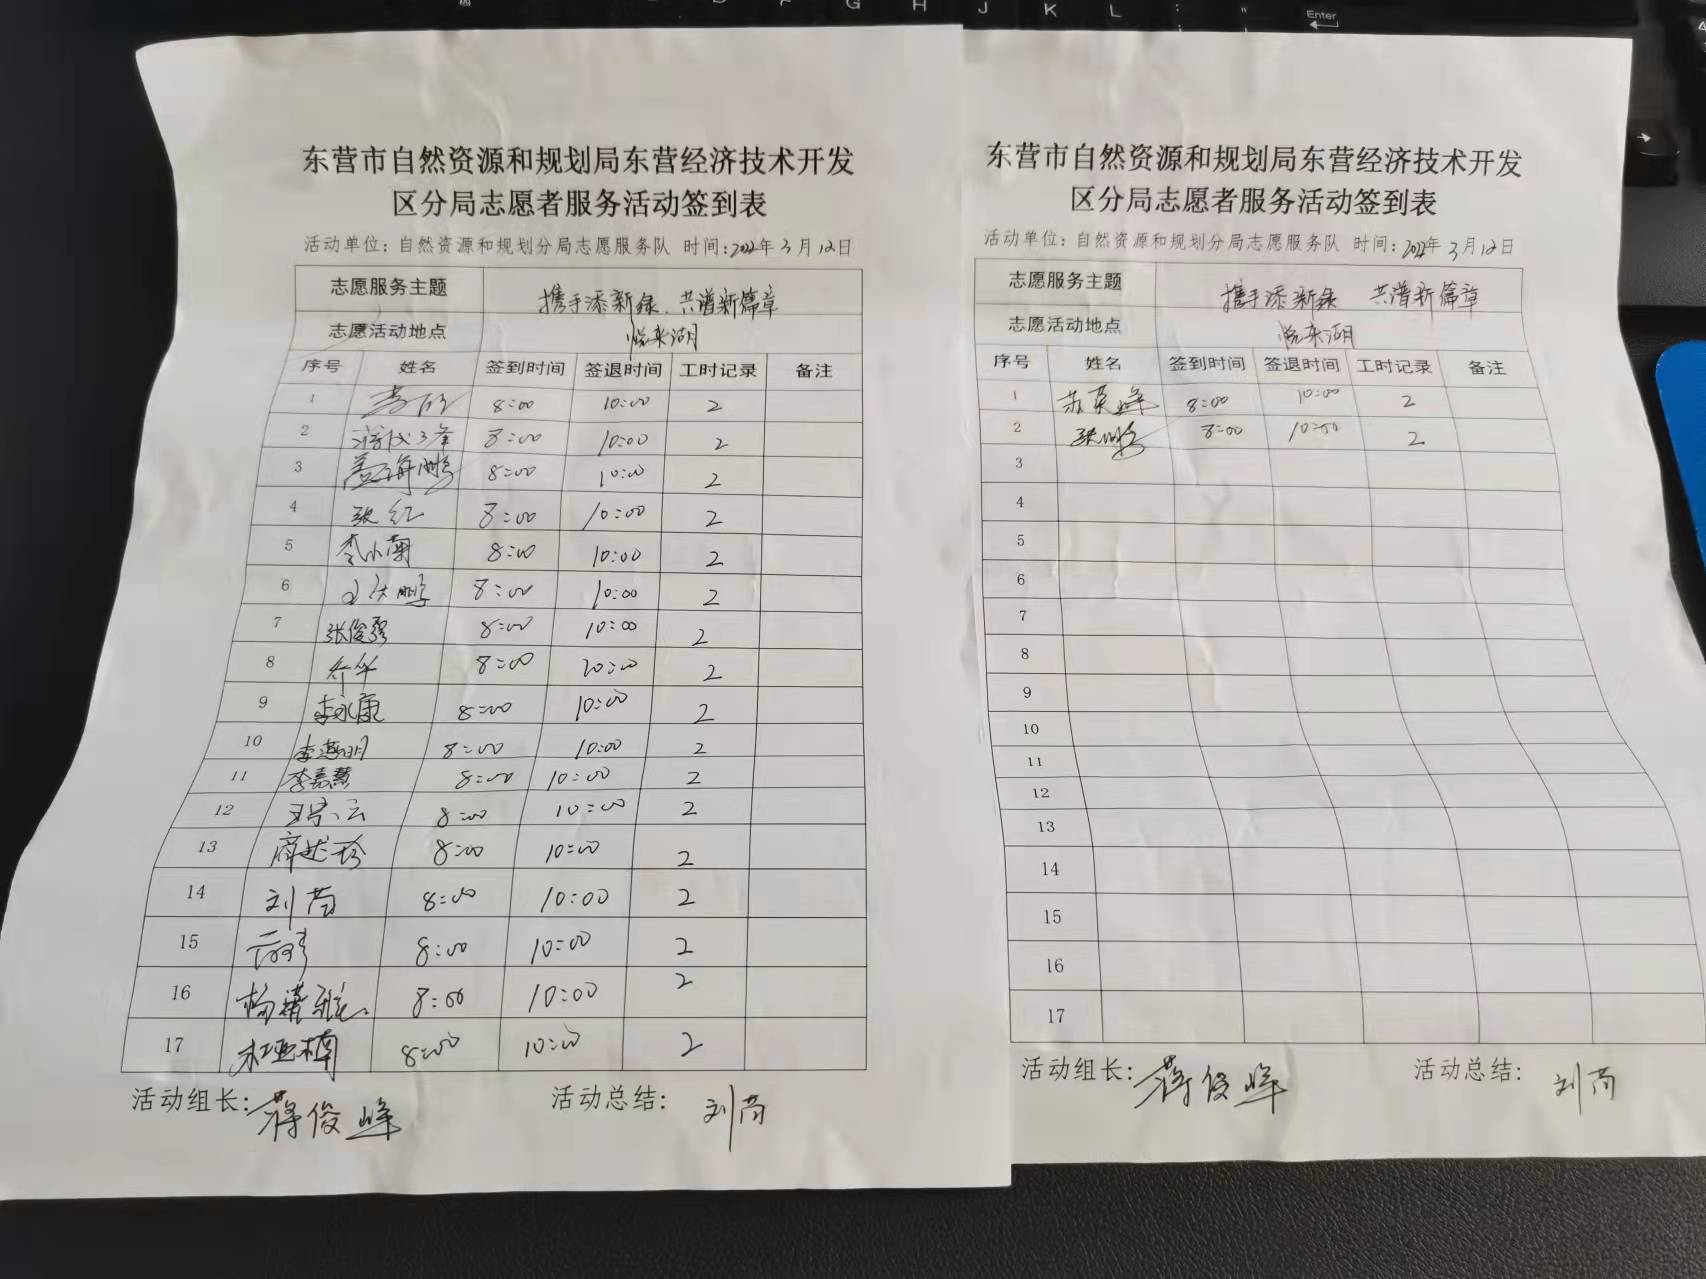 G H J K L : " Enter
东营市自然资源和规划局东营经济技术开发
区分局志愿者服务活动签到表
活动单位：自然资源和规划分局志愿服务队 时间：2022年3月12日
志愿服务主题 携手添新绿、共谱新篇章
志愿活动地点 悦来湖
序号 姓名 签到时间 签退时间 工时记录 备注
1 8:00 10:00 2
2 8:00 10:00 2
3 盖海鹏 8:00 10:00 2
4 张红 8:00 10:00 2
5 李小南 8:00 10:00 2
6 8:00 10:00 2
7 张俊强 8:00 10:00 2
8 8:00 10:00 2
9 李永康 8:00 10:00 2
10 8:00 10:00 2
11 李嘉慧 8:00 10:00 2
12 8:00 10:00 2
13 8:00 10:00 2
14 刘芮 8:00 10:00 2
15 8:00 10:00 2
16 8:00 10:00 2
17 8:00 10:00 2
活动组长：蒋俊峰 活动总结：刘芮
东营市自然资源和规划局东营经济技术开发
区分局志愿者服务活动签到表
活动单位：自然资源和规划分局志愿服务队 时间：2022年3月12日
志愿服务主题 携手添新绿 共谱新篇章
志愿活动地点 悦来湖
序号 姓名 签到时间 签退时间 工时记录 备注
1 苏英峰 8:00 10:00 2
2 8:00 10:00 2
3
4
5
6
7
8
9
10
11
12
13
14
15
16
17
活动组长：蒋俊峰 活动总结：刘芮